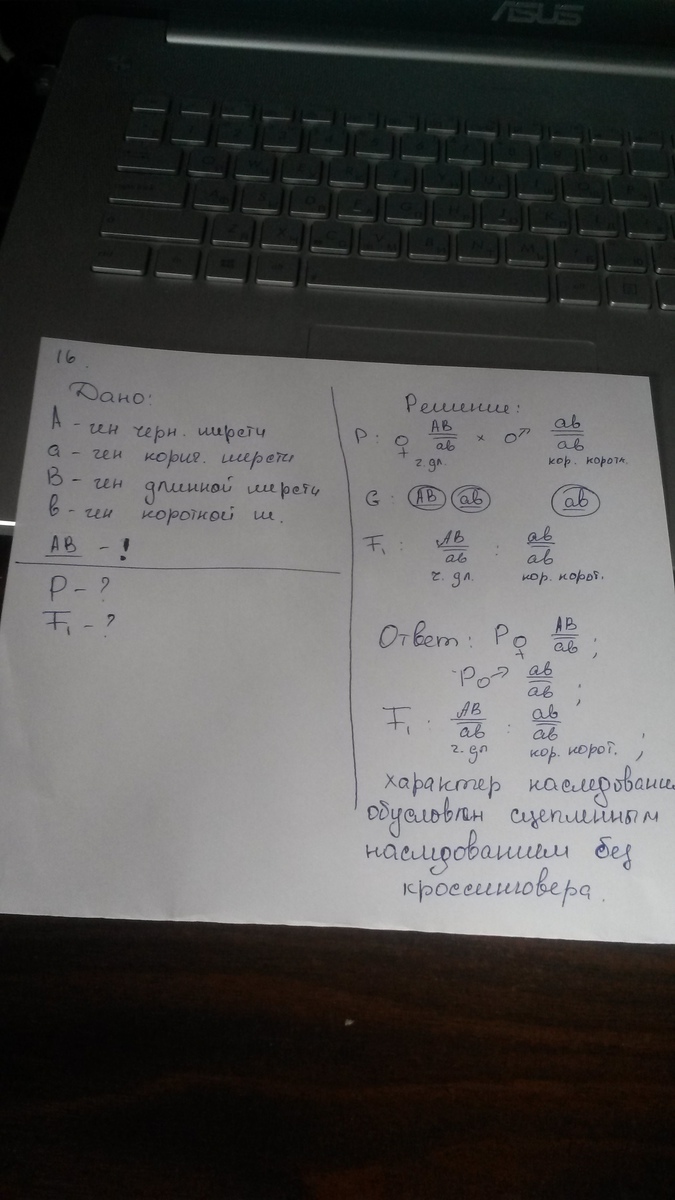 ASUS
16.
Дано:
A - ген черн. шерсти
a - ген корич. шерсти
B - ген длинной шерсти
b - ген короткой ш.
AB - !
P - ?
F₁ - ?
Решение:
P: ♀ AB/ab × ♂ ab/ab
ч. дл. кор. коротк.
G: AB ab ab
F₁: AB/ab : ab/ab
ч. дл. кор. корот.
Ответ: P♀ AB/ab;
P♂ ab/ab;
F₁: AB/ab : ab/ab
ч. дл кор. корот. ;
характер наследования
обусловлен сцепленным
наследованием без
кроссинговера.